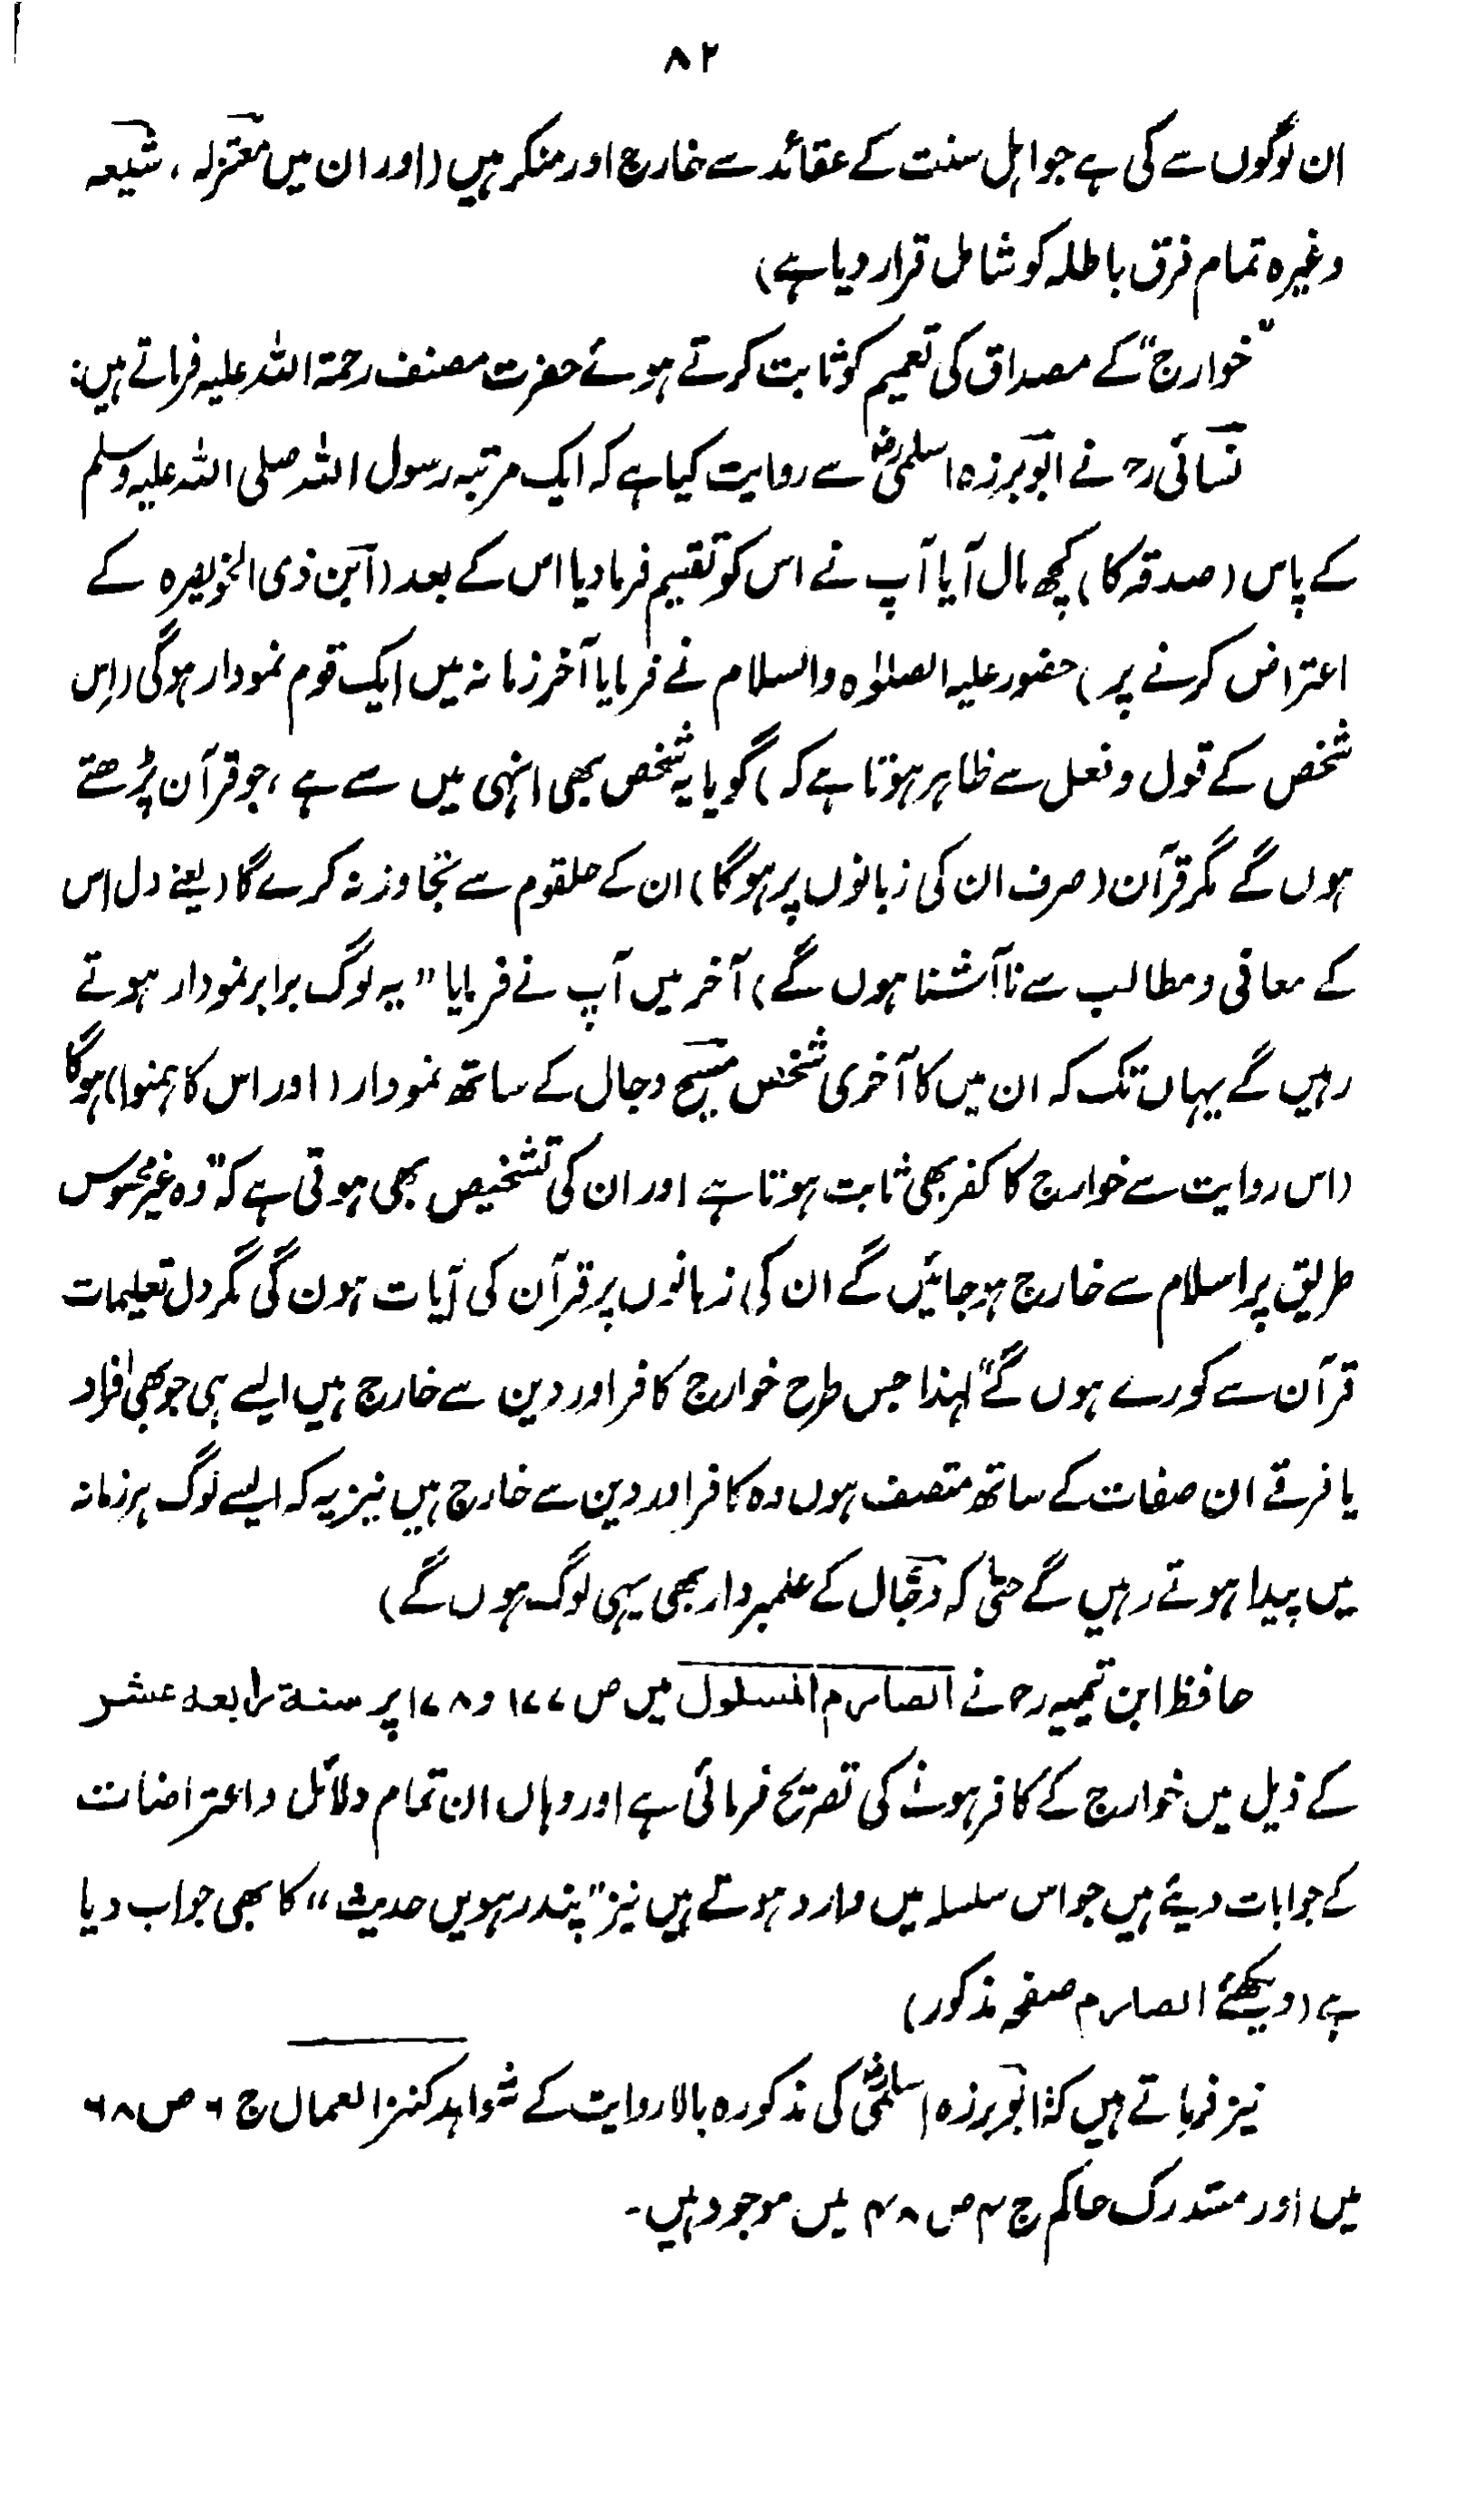 ۸۲
ان لوگوں سے کی ہے جو اہل سنت کے عقائد سے خارج اور منکر ہیں (اور ان میں معتزلہ ، شیعہ
وغیرہ تمام فرق باطلہ کو شامل قرار دیا ہے)
”خوارج“ کے مصداق کی تعمیم کو ثابت کرتے ہوئے حضرت مصنف رحمۃ اللہ علیہ فرماتے ہیں:
نسائی رح نے ابو برزہ اسلمیؓ سے روایت کیا ہے کہ ایک مرتبہ رسول اللہ صلی اللہ علیہ وسلم
کے پاس (صدقہ کا) کچھ مال آیا آپ نے اس کو تقسیم فرما دیا اس کے بعد (ابن ذی الخویصرہ کے
اعتراض کرنے پر) حضور علیہ الصلوٰہ والسلام نے فرمایا آخر زمانہ میں ایک قوم نمودار ہوگی (اِس
شخص کے قول و فعل سے ظاہر ہوتا ہے کہ) گویا یہ شخص بھی انہی میں سے ہے ، جو قرآن پڑھتے
ہوں گے مگر قرآن (صرف ان کی زبانوں پر ہوگا) ان کے حلقوم سے تجاوز نہ کرے گا (یعنے دل اس
کے معانی و مطالب سے ناآشنا ہوں گے) آخر میں آپ نے فرمایا ”یہ لوگ برابر نمودار ہوتے
رہیں گے یہاں تک کہ ان میں کا آخری شخص مسیح دجال کے ساتھ نمودار (اور اس کا ہمنوا) ہوگا
(اس روایت سے خوارج کا کفر بھی ثابت ہوتا ہے اور ان کی تشخیص بھی ہوتی ہے کہ ”وہ غیر محسوس
طریق پر اسلام سے خارج ہو جائیں گے ان کی زبانوں پر قرآن کی آیات ہوں گی مگر دل تعلیمات
قرآن سے کورے ہوں گے“ لہذا جس طرح خوارج کافر اور دین سے خارج ہیں ایسے ہی جو بھی افراد
یا فرقے ان صفات کے ساتھ متصف ہوں وہ کافر اور دین سے خارج ہیں نیز یہ کہ ایسے لوگ ہر زمانہ
میں پیدا ہوتے رہیں گے حتیٰ کہ دجّال کے علمبردار بھی یہی لوگ ہوں گے)
حافظ ابن تیمیہ رح نے الصارم المسلول میں ص ۱۷۷ و ۱۷۸ پر سنۃ رابعۃ عشر
کے ذیل میں خوارج کے کافر ہونے کی تصریح فرمائی ہے اور وہاں ان تمام دلائل و اعتراضات
کے جوابات دیئے ہیں جو اس سلسلہ میں وارد ہوتے ہیں نیز ”پندرہویں حدیث“ کا بھی جواب دیا
ہے (دیکھئے الصارم صفحہ مذکور)
نیز فرماتے ہیں کہ: ابو برزہ اسلمیؓ کی مذکورہ بالا روایت کے شواہد کنز العمال ج ۶ ص ۶۸
میں اور مستدرک حاکم ج ۴ ص ۴۸ میں موجود ہیں۔